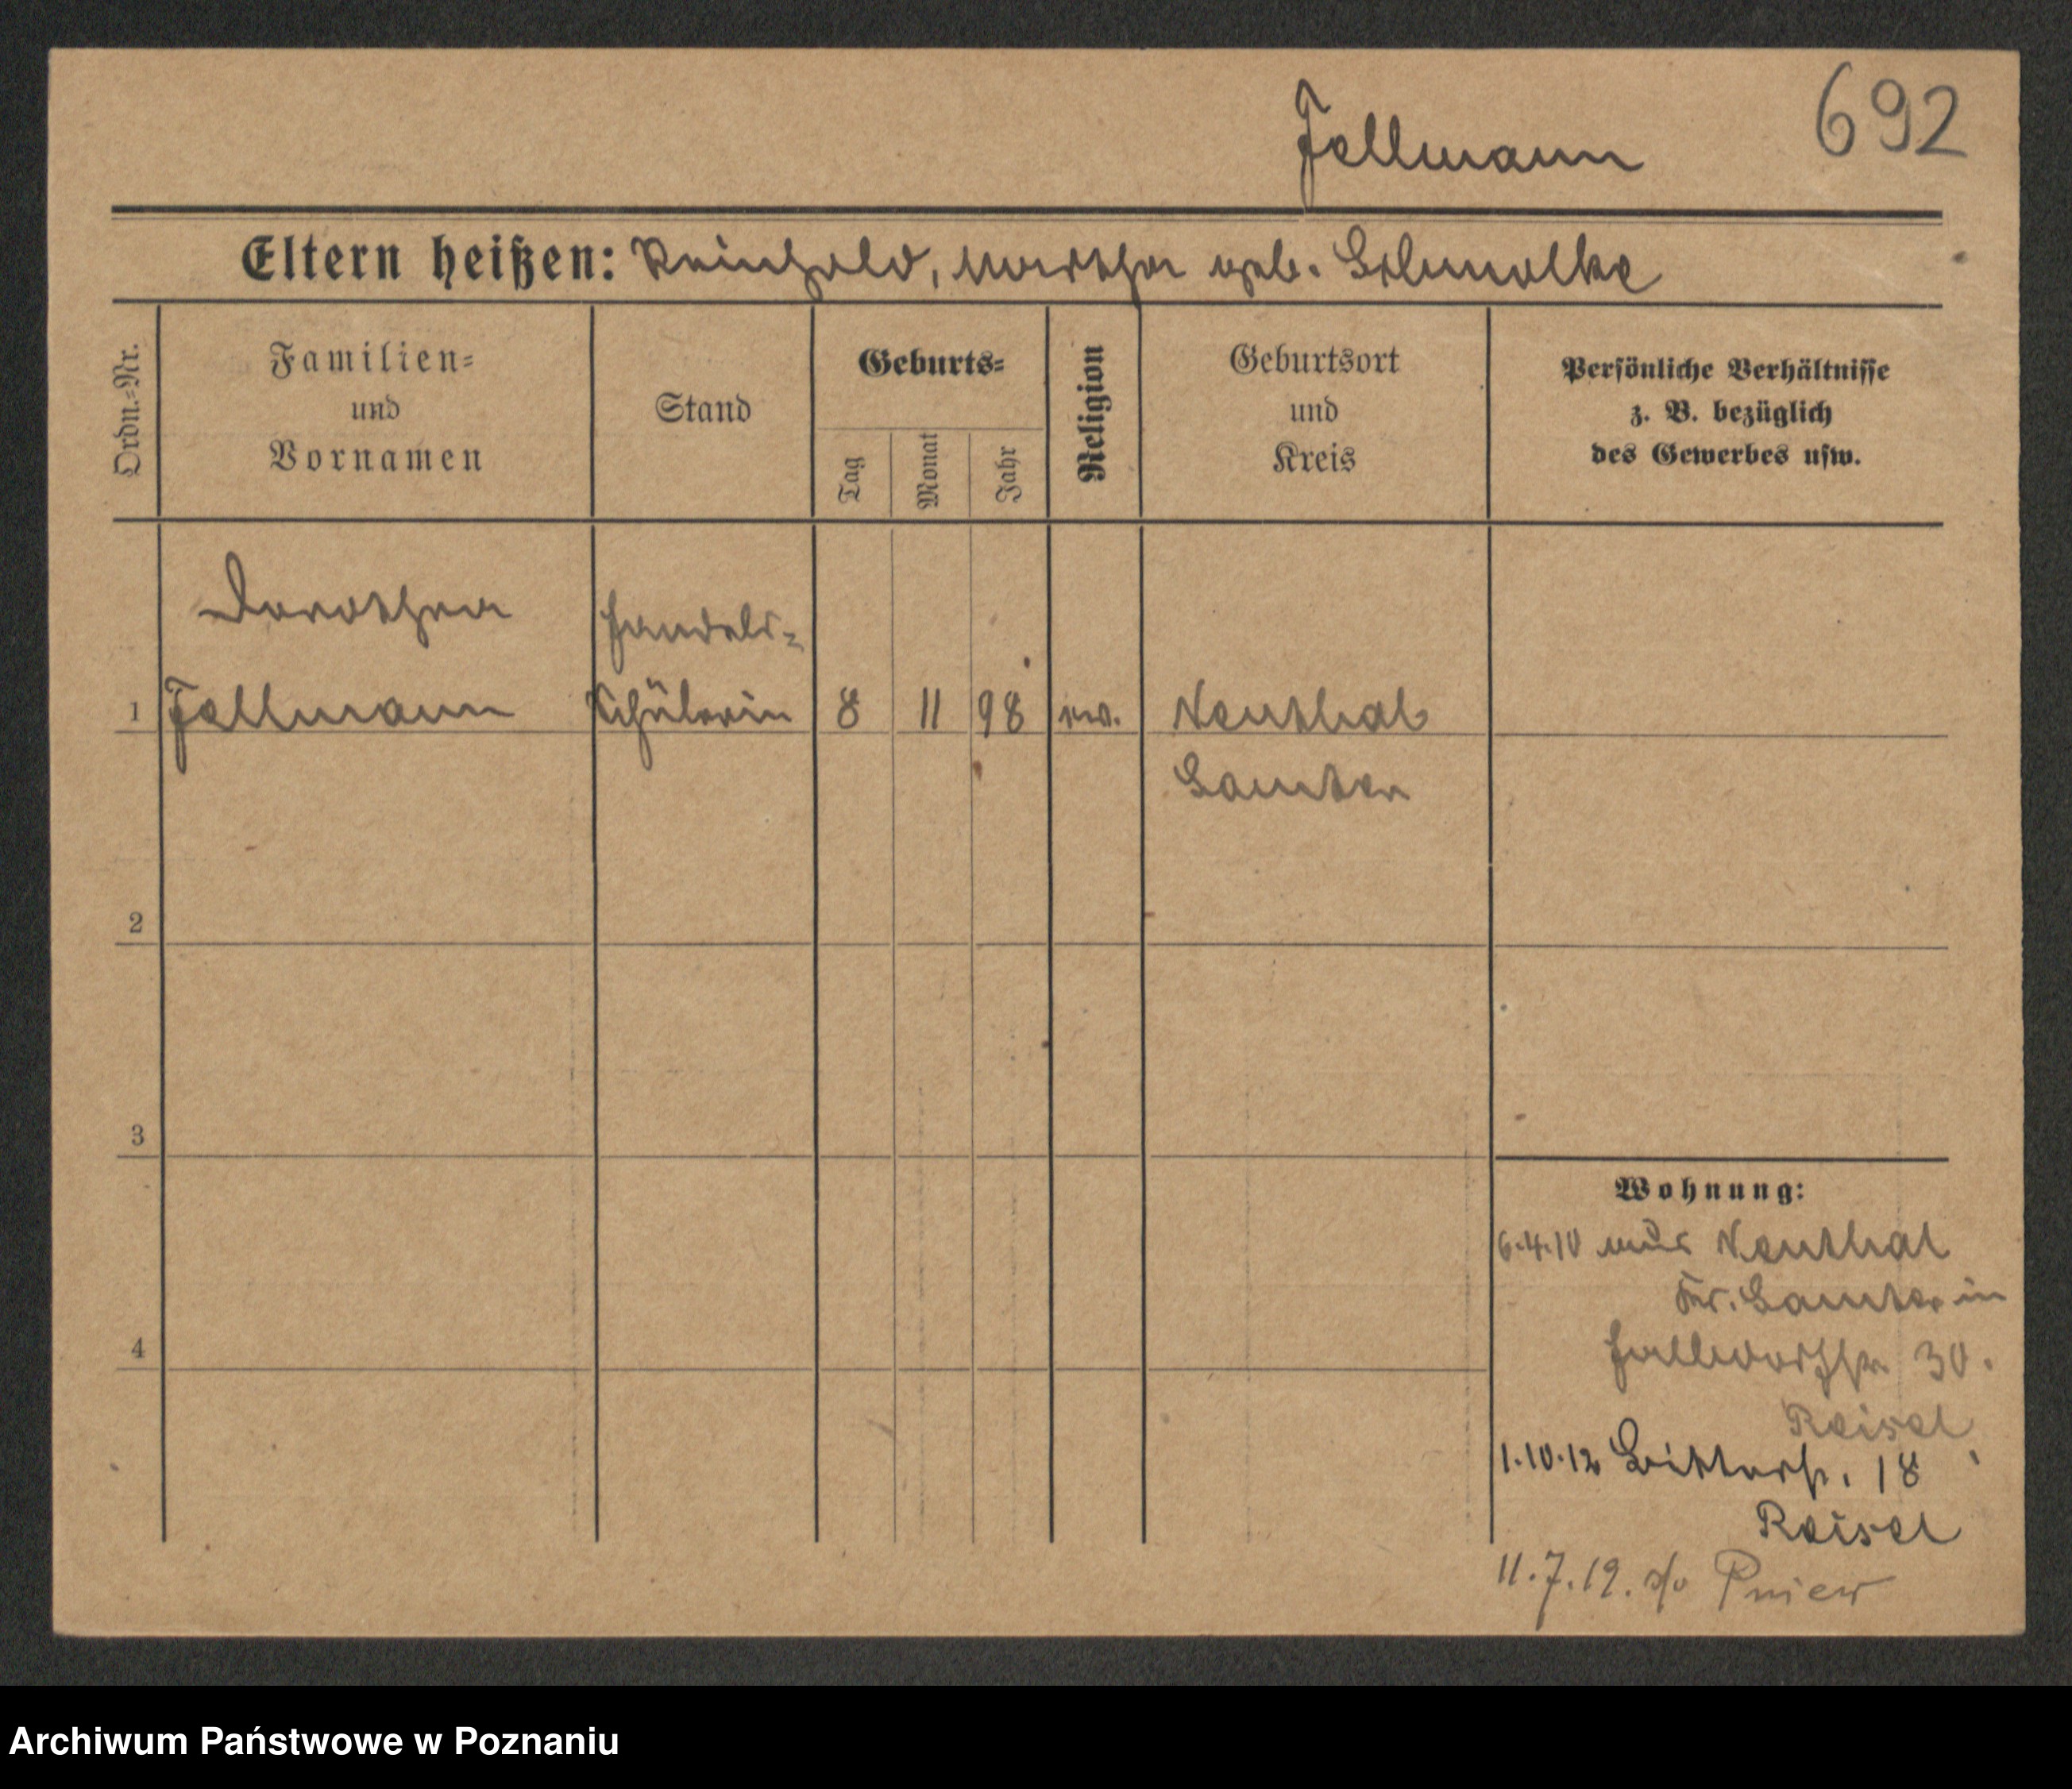 Fellmann 692
Eltern heißen: Reinhold, Martha geb. Schmolke
Ordn.-Nr.
Familien-
und
Vornamen
Stand
Geburts-
Tag
Monat
Jahr
Religion
Geburtsort
und
Kreis
Persönliche Verhältnisse
z. B. bezüglich
des Gewerbes usw.
Dorothea Handels-
1 Fellmann Schülerin 8 11 98 ev. Neuthal
Samter
2
3
4
Wohnung:
6.4.10 aus Neuthal
Kr. Samter in
30.
Reisel
1.10.12 18
Reisel
11.7.19. Pniew
Archiwum Państwowe w Poznaniu